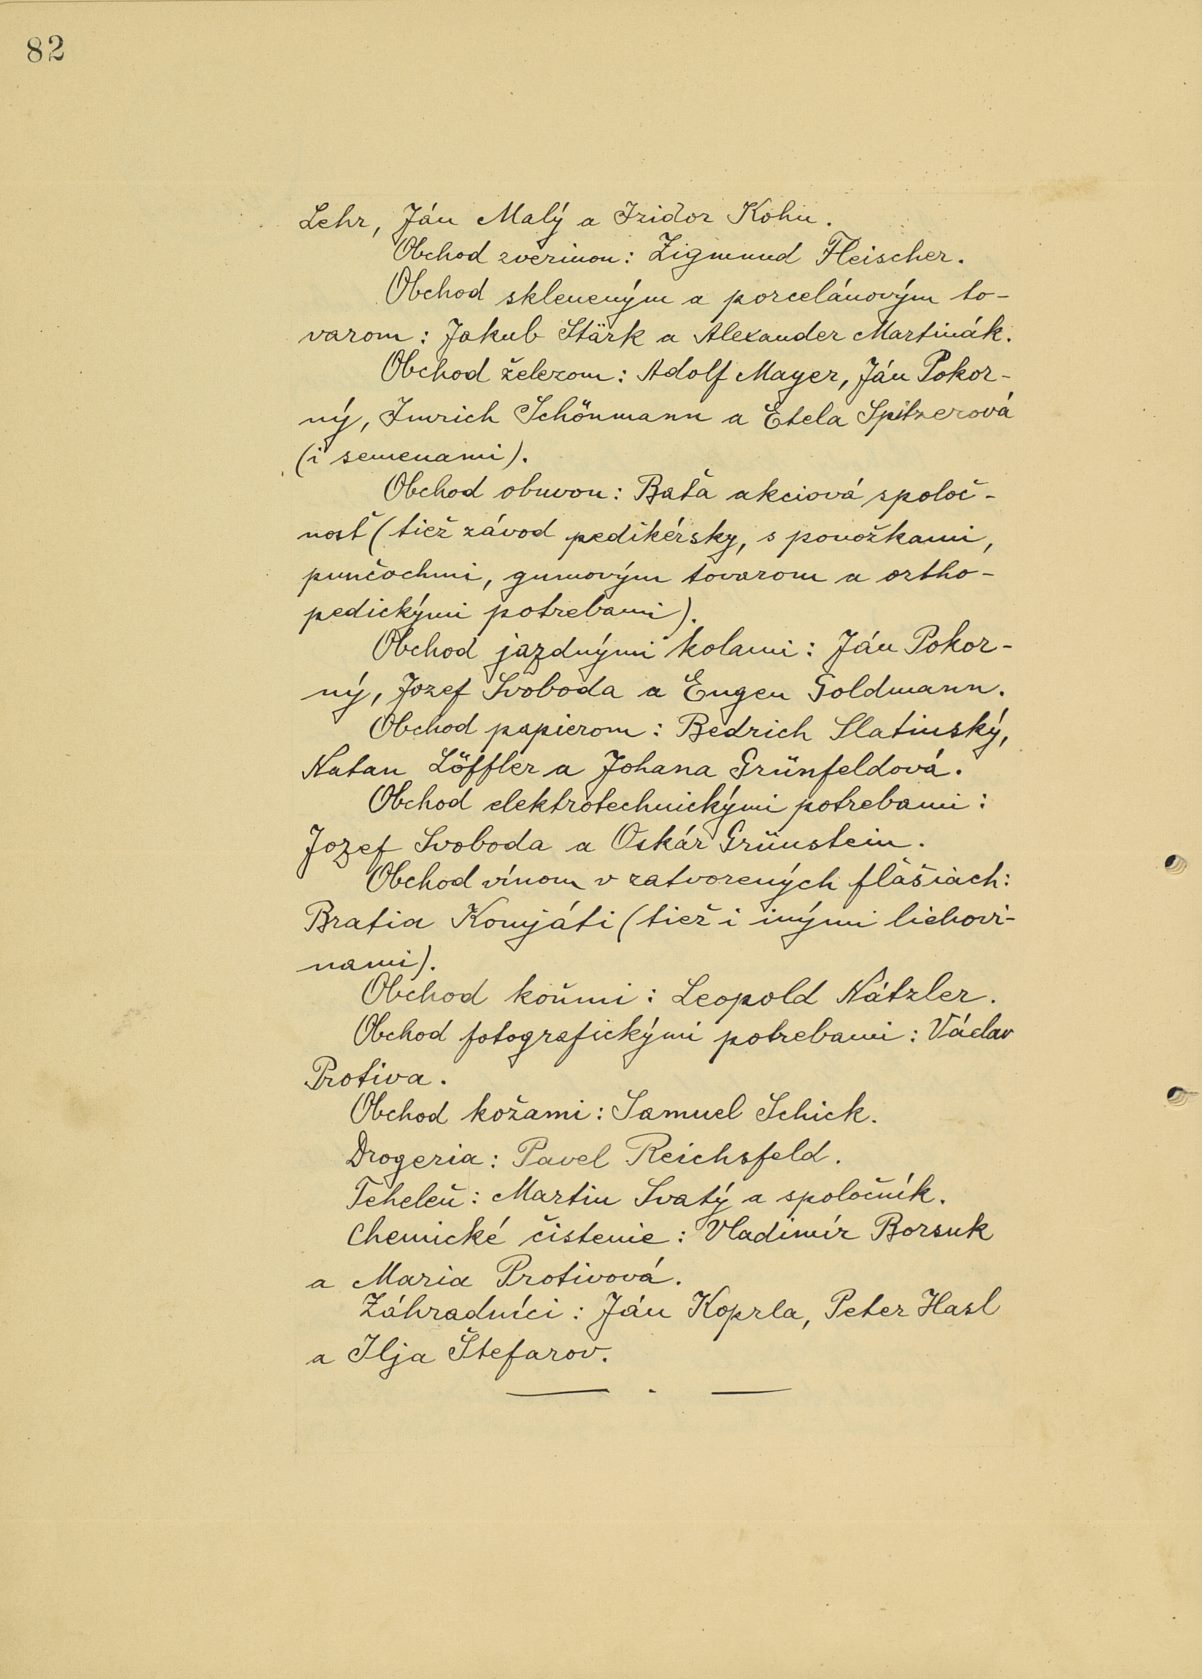 82
Lehr, Ján Malý a Izidor Kohn.
Obchod zverinou: Zigmund Fleischer.
Obchod skleneným a porcelánovým to-
varom: Jakub Stärk a Alexander Martinák.
Obchod železom: Adolf Mayer, Ján Pokor-
ný, Imrich Schönmann a Etela Spitzerová
(i semenami).
Obchod obuvou: Baťa akciová spoloč-
nosť (tiež závod pedikérsky, s ponožkami,
punčochmi, gumovým tovarom a ortho-
pedickými potrebami).
Obchod jazdnými kolami: Ján Pokor-
ný, Jozef Svoboda a Eugen Goldmann.
Obchod papierom: Bedrich Slatinský,
Natan Löffler a Johana Grünfeldová.
Obchod elektrotechnickými potrebami:
Jozef Svoboda a Oskár Grünstein.
Obchod vínom v zatvorených flášiach:
Bratia Komjáti (tiež i inými liehovi-
nami).
Obchod koňmi: Leopold Nátzler.
Obchod fotografickými potrebami: Václav
Protiva.
Obchod kožami: Samuel Schick.
Drogeria: Pavel Reichsfeld.
Teheleň: Martin Svatý a spoločník.
Chemické čistenie: Vladimír Borsuk
a Maria Protivová.
Záhradníci: Ján Koprla, Peter Hasl
a Ilja Štefarov.